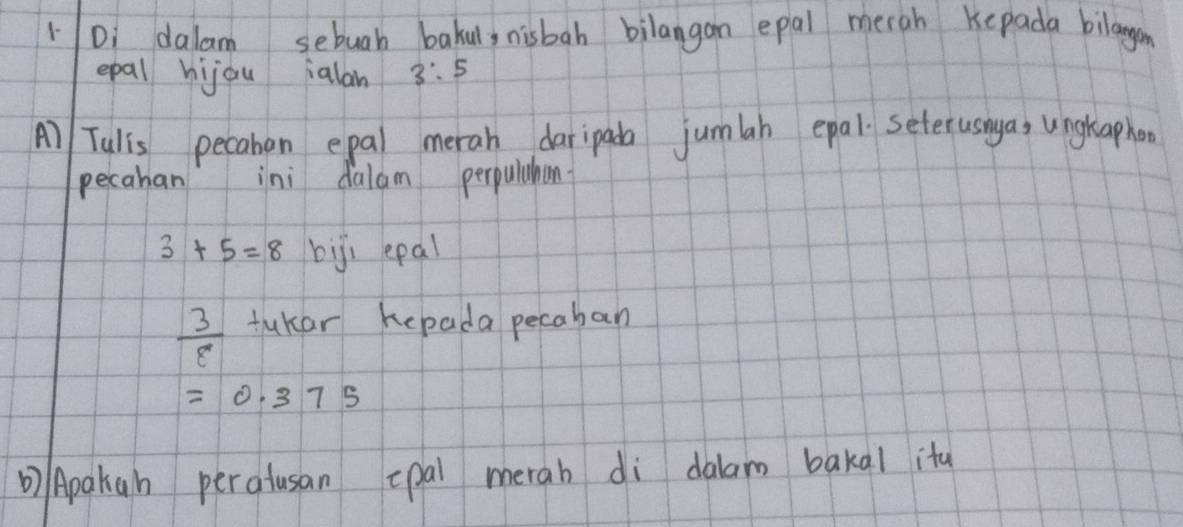 1. Di dalam sebuah bakul, nisbah bilangan epal merah kepada bilangan
epal hijau ialah 3:5
A) Tulis pecahan epal merah daripada jumlah epal. Seterusnya, ungkaphan
pecahan ini dalam perpuluhan.
3 + 5 = 8 biji epal
3/8 tukar kepada pecahan
= 0.375
b) Apakah peratusan epal merah di dalam bakal itu